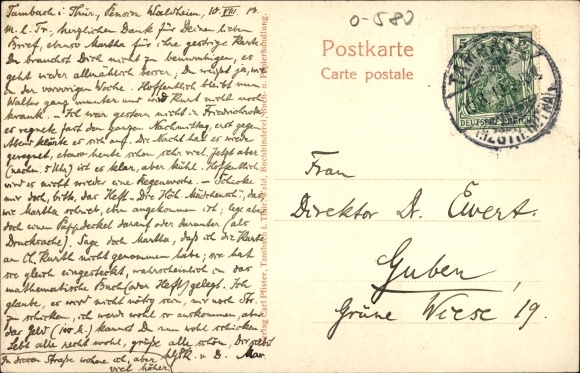 Tambach i. Thür., Pension Waldheim, 10.VIII. 13.
M. l. Tr., herzlichen Dank für Deinen lieben
Brief, ebenso Martha für ihre gestrige Karte.
Du brauchst Dich nicht zu beunruhigen, es
geht wieder allmählich besser; Du weißt ja, wie
in der vorigen Woche. Hoffentlich bleibt nun
Walter ganz munter und wird Kurt nicht noch
krank. – Ich war gestern nicht in Friedrichroda
es regnete fast den ganzen Nachmittag, erst gegen
Abend klärte es sich auf. Die Nacht hat es wieder
geregnet, etwas heute schon sehr viel, jetzt aber
(nachm. Uhr) ist es klar, aber kühl. Hoffentlich
wird es nicht wieder eine Regenwoche. – Schicke
mir doch, bitte, das Heft "Die Höh. Mädchensch.", das,
wie Martha schrieb, eben angekommen ist; lege aber
doch einen Pappdeckel darauf oder darunter (als
Drucksache). Sage doch Martha, daß ich die Karte
an Ch. Kurth nicht genommen habe; sie hat
sie gleich eingesteckt, wahrscheinlich in das
mathematische Buch (oder Heft) gelegt. Ich
glaube, es wird nicht nötig sein, mir noch Str.
zu schicken, ich werde wohl so auskommen, aber
das Geld (100 M.) kannst Du nun wohl schicken.
Lebt alle recht wohl, grüße alle schön, Dir selbst
u. D. Max.
In dieser Straße wohne ich, aber
viel höher
0-580
Postkarte
Carte postale
TAMBACH
Frau
Direktor Dr. Ewert.
Guben,
Grüne Wiese 19.
Verlag Carl Pfister, Tambach i. Thür. Wald, Buchbinderei, Buch- u. Papierhandlung.